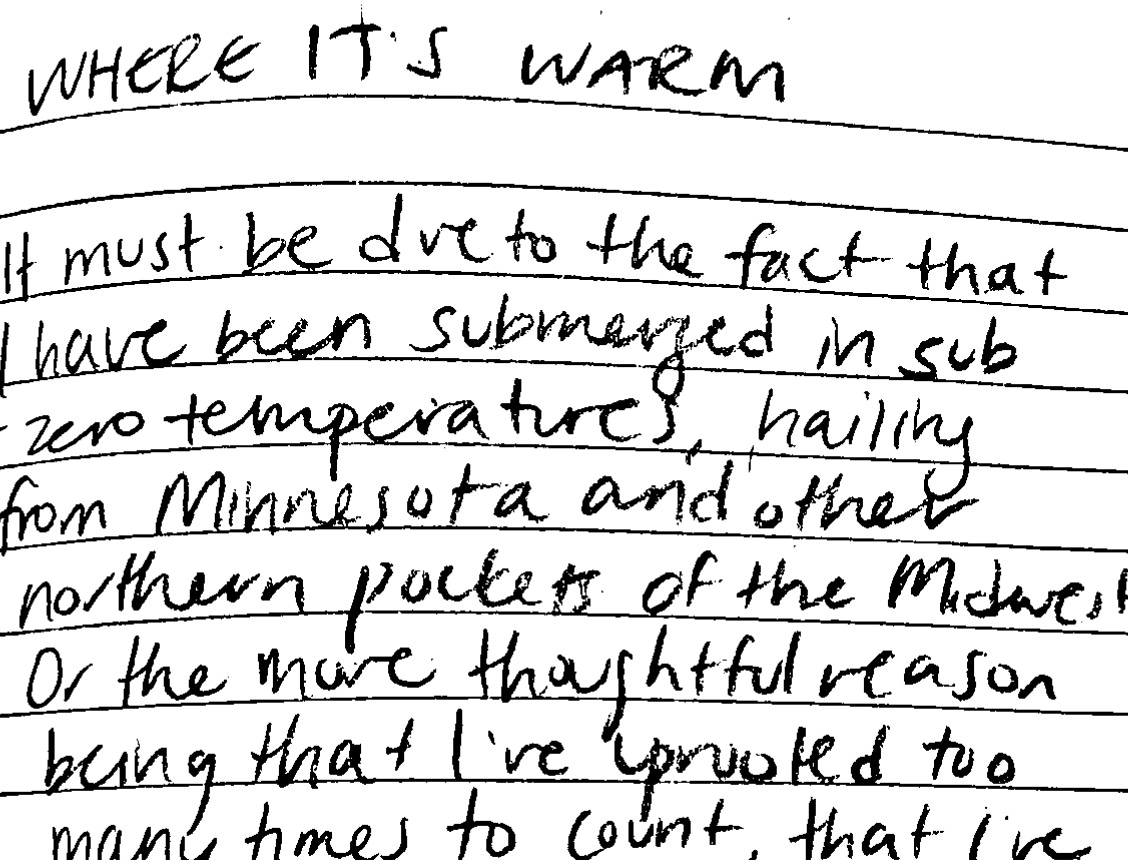 WHERE IT'S WARM
It must be due to the fact that
I have been submerged in sub
-zero temperatures, hailing
from Minnesota and other
northern pockets of the Midwest
Or the more thoughtful reason
being that I've uprooted too
many times to count, that I've